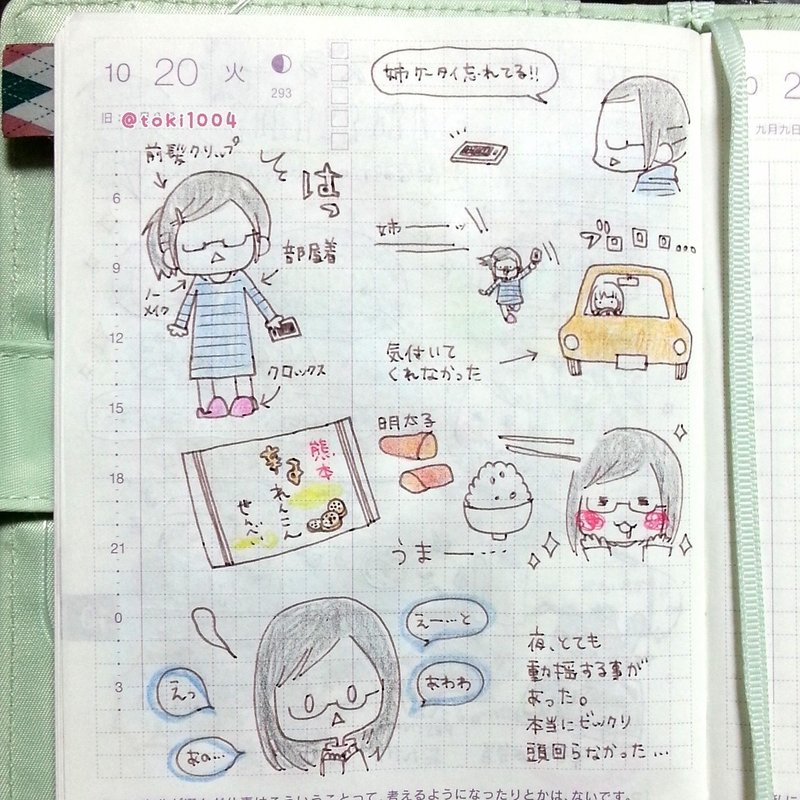 10 20 火
293
旧
@toki1004
姉ケータイ忘れてる!!
前髪クリップ
はっ
部屋着
ノー
メイク
クロックス
姉ーーッ
ブロロロ...
気付いて
くれなかった
6
9
12
15
18
21
0
3
熊本
辛子
れんこん
せんべい
明太子
うまー…
えーーと
えっ
あわわ
あの…
夜、とても
動揺する事が
あった。
本当にビックリ
頭回らなかった…
2
九月九日
考えるようになったりとかは、ないです。